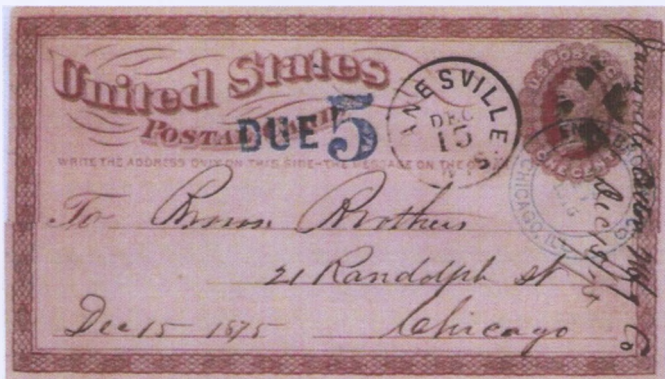 United States
Postal Card
DUE 5
WRITE THE ADDRESS ONLY ON THIS SIDE—THE MESSAGE ON THE O
NESVILLE
DEC
15
U.S. POSTAGE
ONE CENT
CHICAGO, ILL
To Brown Brothers
21 Randolph St
Chicago
Dec 15 1875
Janesville Cotton Mf'g Co
Dec 15/75